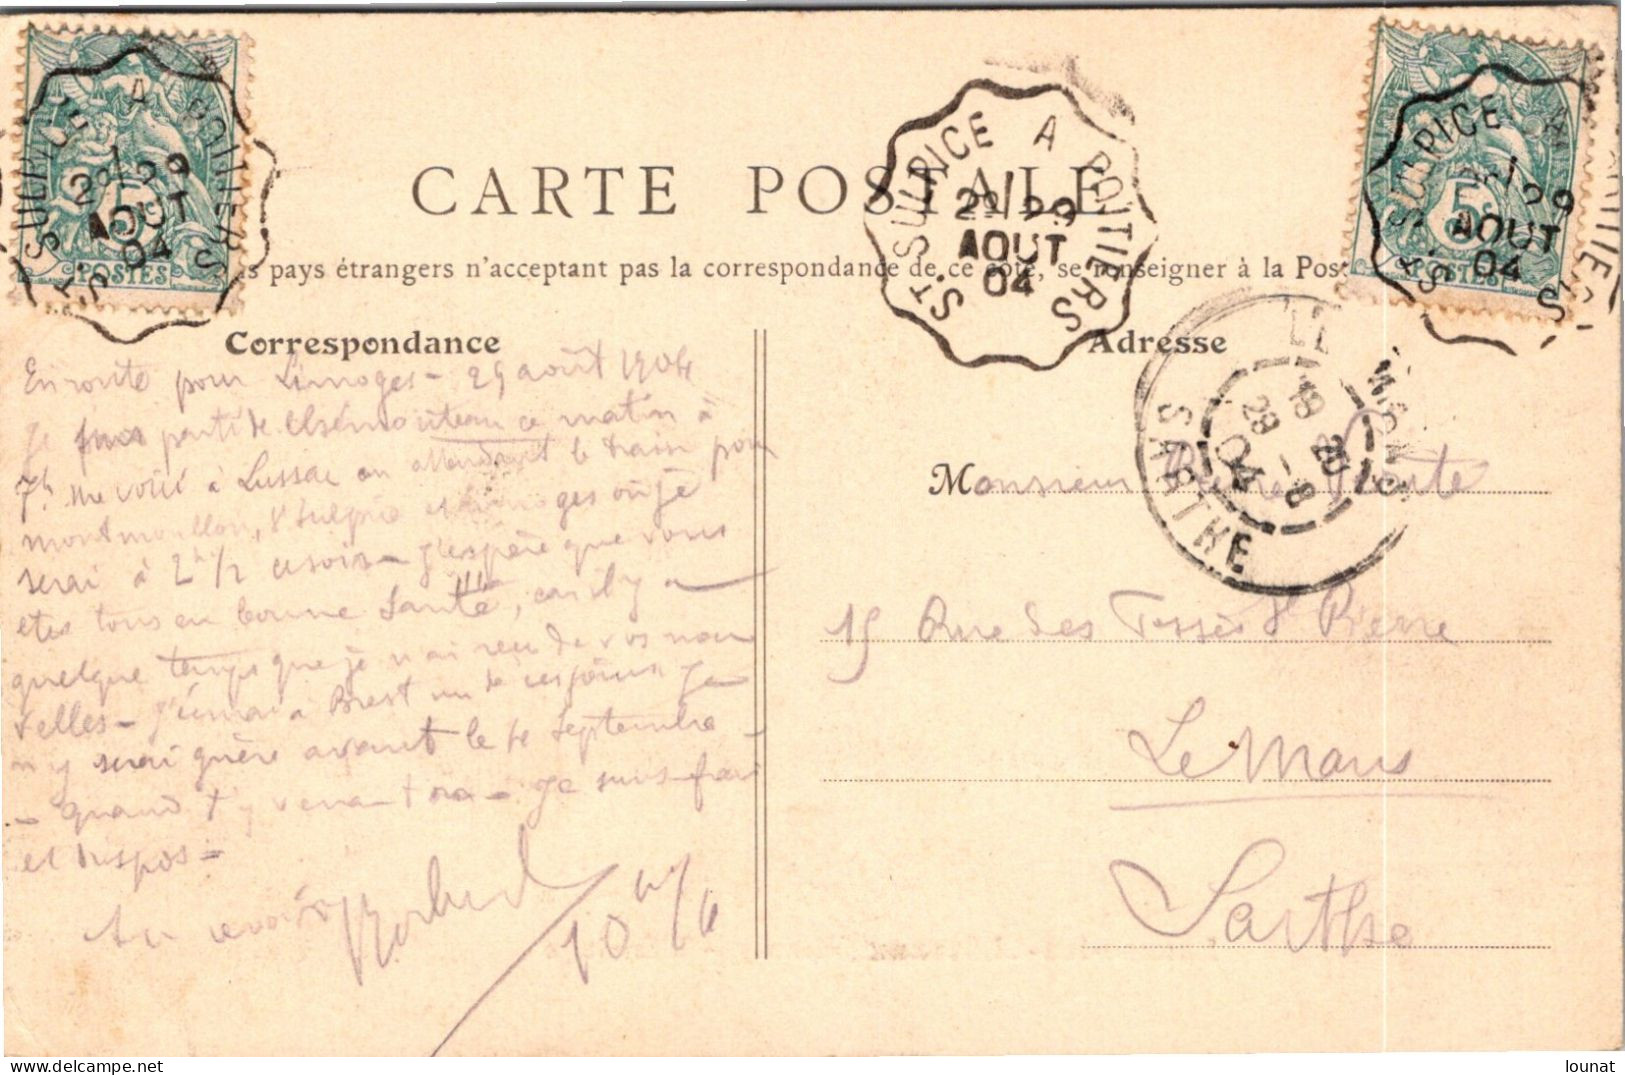 CARTE POSTALE
pays étrangers n'acceptant pas la correspondance de ce côté, se renseigner à la Pos
Correspondance
Adresse
En route pour Limoges - 29 août 1904
Je suis parti de ce matin à
7h me voici à Lussac en attendant le train pour
montmorillon, St Sulpice et Limoges où je
serai à 2h 1/2 ce soir - J'espère que vous
etes tous en bonne Santé, car il y a
quelque temps que je n'ai reçu de vos nou
velles - à Brest un de ces jours Je
n'y serai guère avant le Septembre -
- Quand t'y - Je suis frais
et dispos -
Au revoir
Monsieur
15 Rue des Tessés St Pierre
Le Mans
Sarthe
ST SULPICE A POITIERS
29
AOUT
04
ST SULPICE A POITIERS
29
AOUT
04
ST SULPICE A POITIERS
29
AOUT
04
5c
POSTES
5c
POSTES
LE MANS
SARTHE
04
lounat